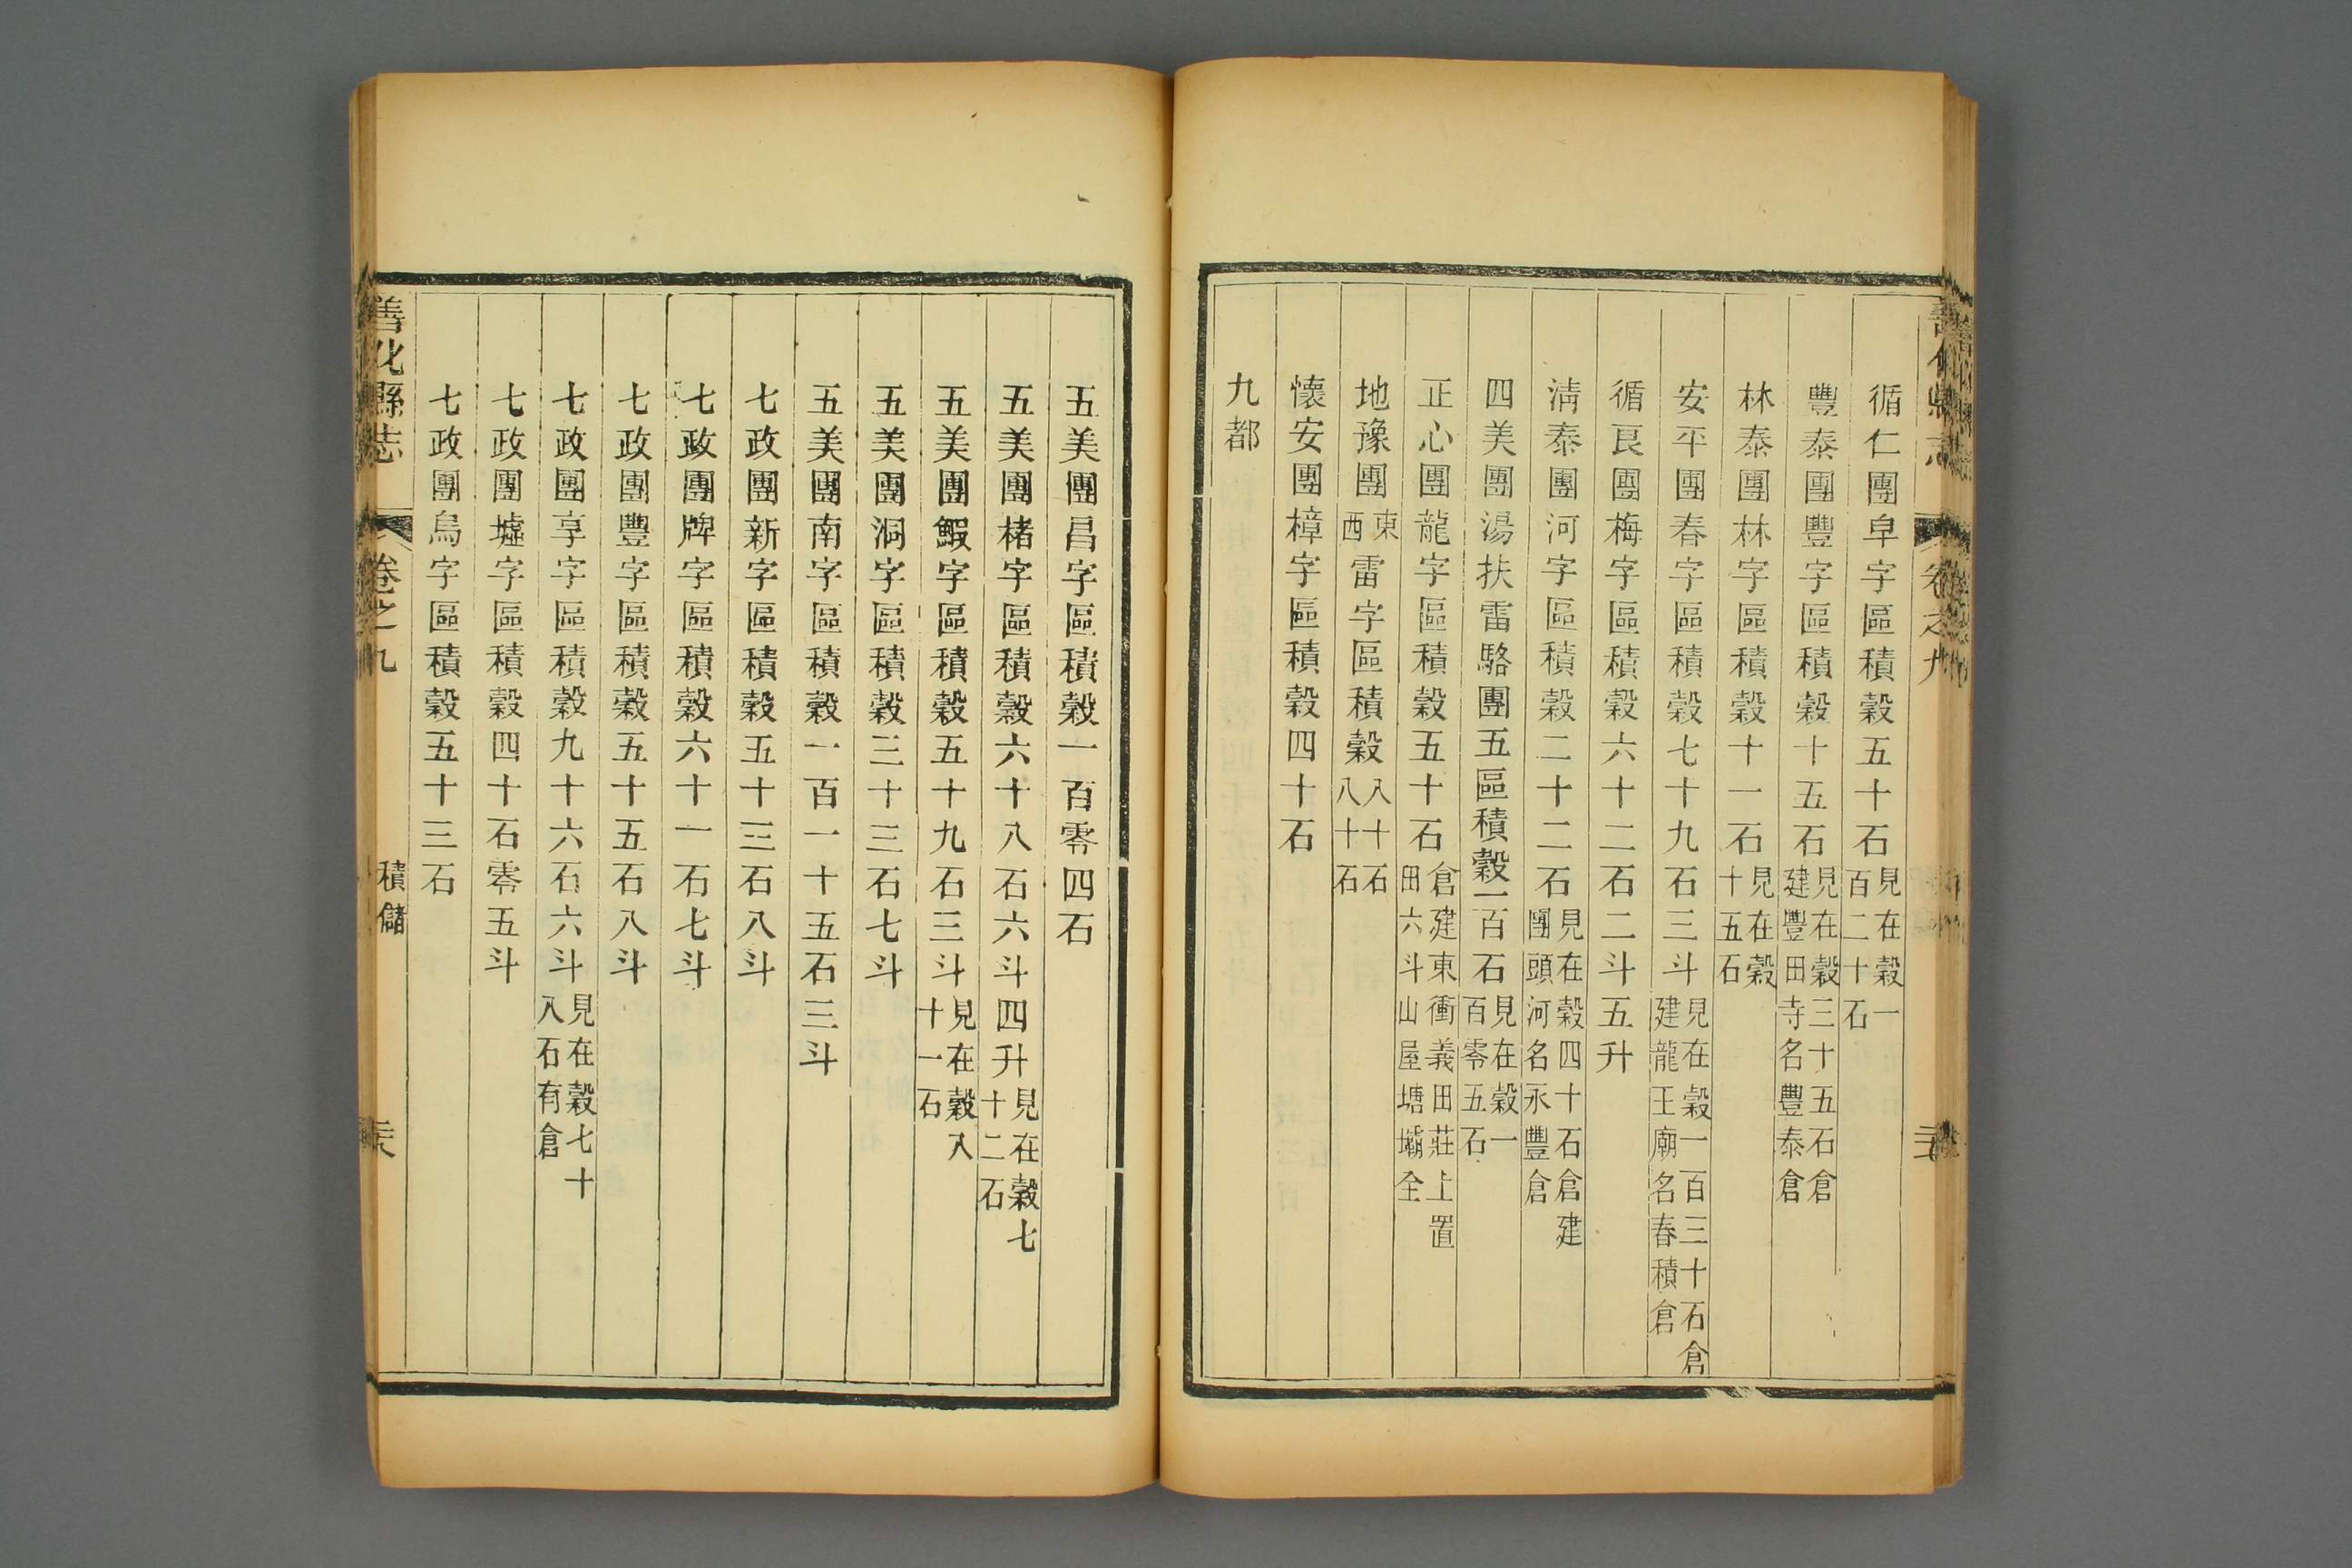 循仁團皁字區積穀五十石見在穀一百二十石
豐泰團豐字區積穀十五石見在穀三十五石倉建豐田寺名豐泰倉
林泰團林字區積穀十一石見在穀十五石
安平團春字區積穀七十九石三斗見在穀一百三十石倉建龍王廟名春積倉
循良團梅字區積穀六十二石二斗五升
清泰團河字區積穀二十二石見在穀四十石倉建團頭河名永豐倉
四美團湯扶雷駱團五區積穀一百石見在穀一百零五石
正心團龍字區積穀五十石倉建東衝義田莊上置田六斗山屋塘壩全
地豫團東西雷字區積穀八十石八十石
懷安團樟字區積穀四十石
九都
五美團昌字區積穀一百零四石
五美團楮字區積穀六十八石六斗四升見在穀七十二石
五美團鰕字區積穀五十九石三斗見在穀八十一石
五美團洞字區積穀三十三石七斗
五美團南字區積穀一百一十五石三斗
七政團新字區積穀五十三石八斗
七政團牌字區積穀六十一石七斗
七政團豐字區積穀五十五石八斗
七政團享字區積穀九十六石六斗見在穀七十八石有倉
七政團墟字區積穀四十石零五斗
七政團烏字區積穀五十三石
善化縣志 卷之九 積儲